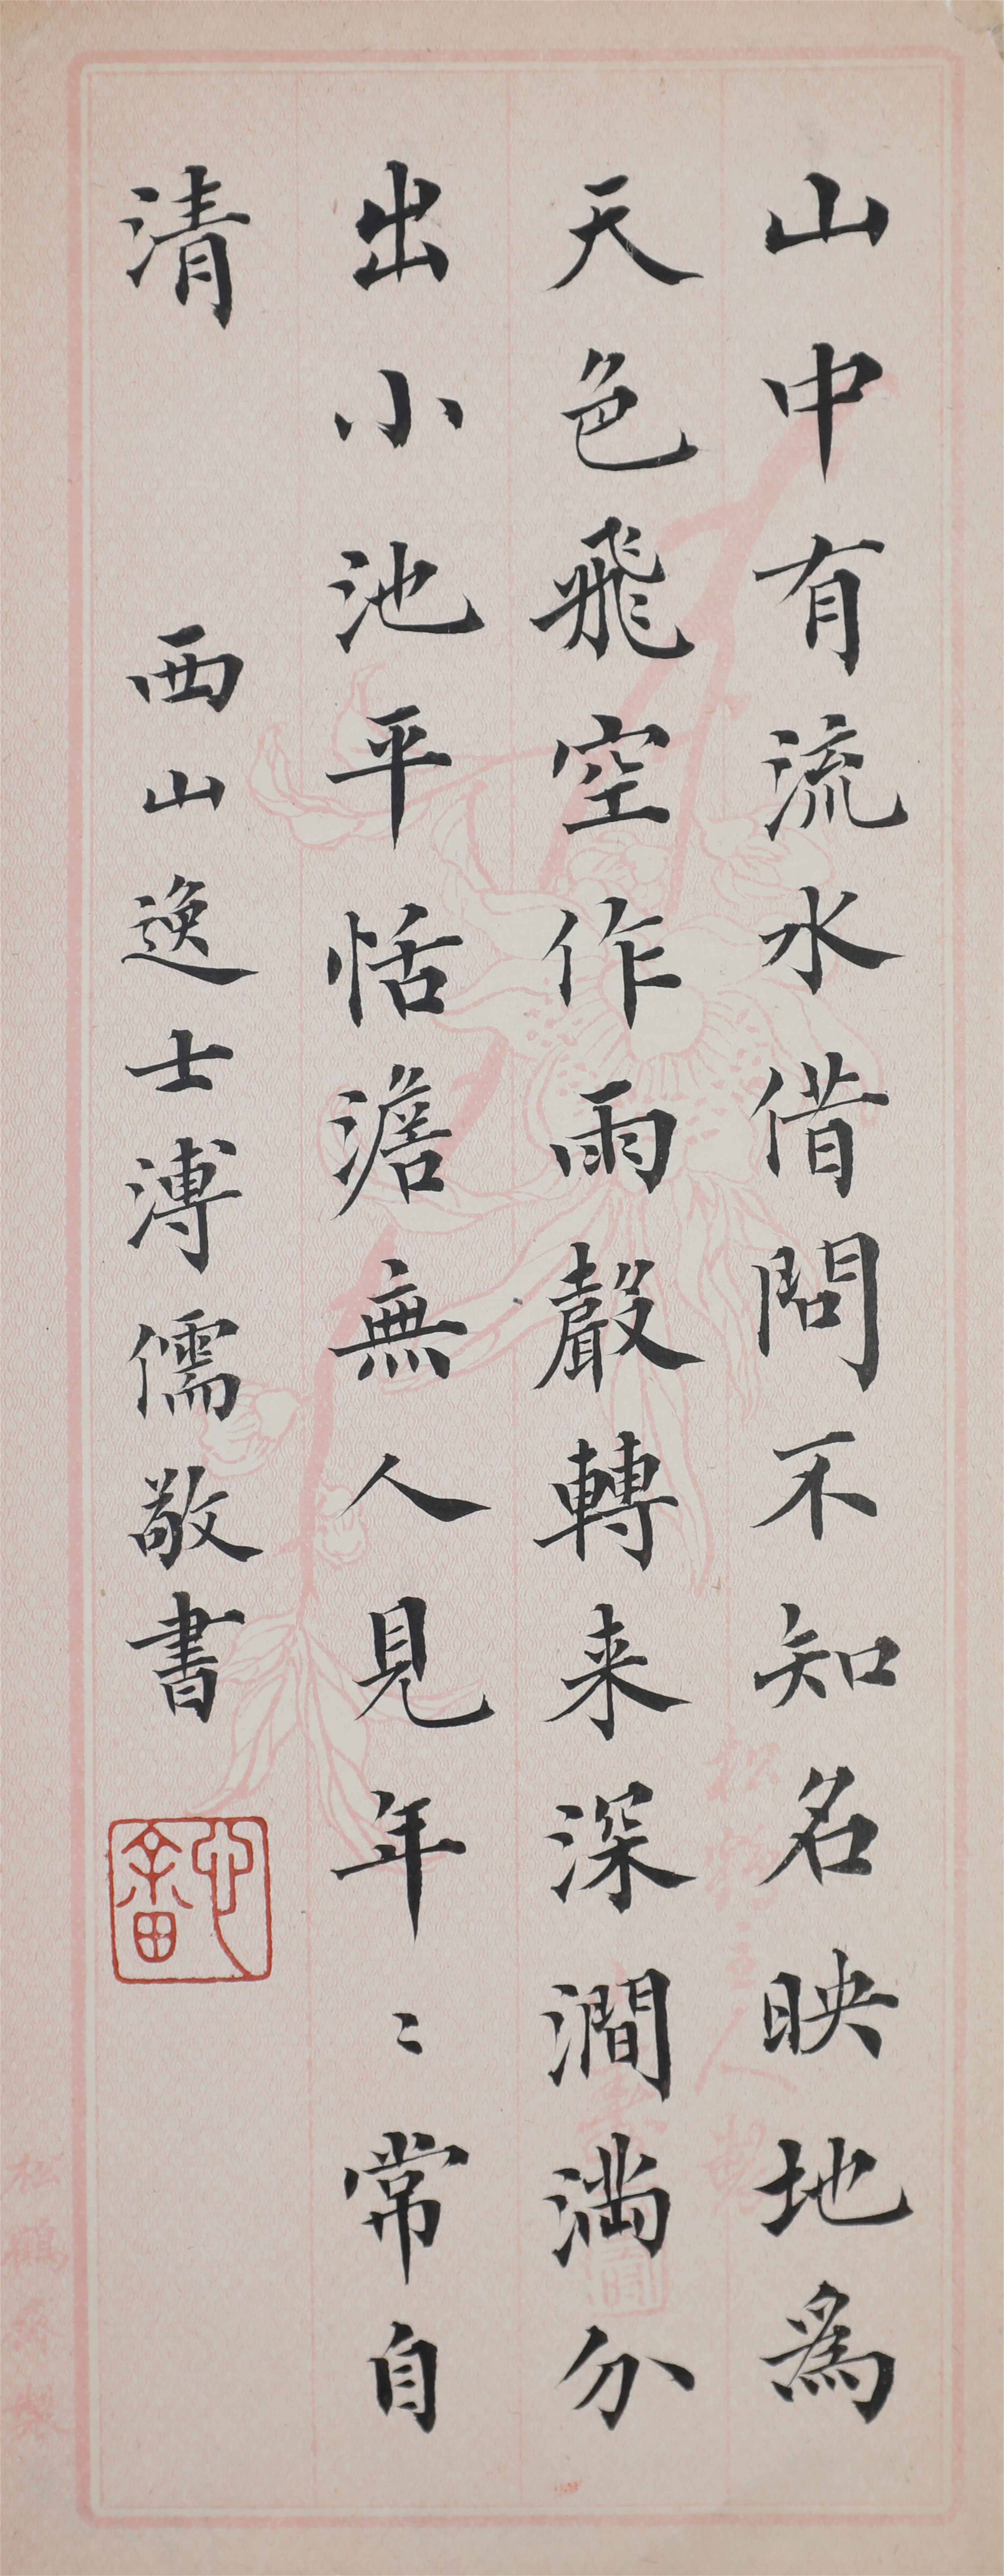 山中有流水借問不知名映地為
天色飛空作雨聲轉来深澗満分
出小池平恬澹無人見年〻常自
清
西山逸士溥儒敬書
松鶴齋製